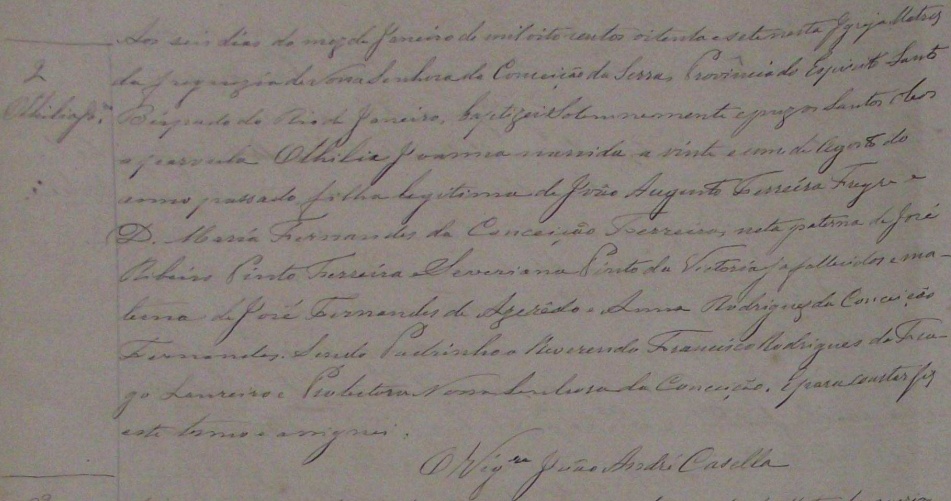 Aos seis dias do mez de Janeiro de mil oito centos oitenta e sete nesta Igreja Matriz
2
da freguezia de Nossa Senhora da Conceição da Serra, Provincia do Espirito Santo
Othilia
Bispado do Rio de Janeiro, baptizei solemnemente e puz os Santos Oleos
a parvula Othilia Joanna nascida a vinte e um de Agosto do
anno passado, filha legitima de João Augusto Ferreira Freyre e
D. Maria Fernandes da Conceição Ferreira, neta paterna de José
Ribeiro Pinto Ferreira e Severiana Pinto da Victoria ja fallecidos e ma-
terna de José Fernandes de Azerêdo e Anna Rodrigues da Conceição
Fernandes. Sendo Padrinho o Reverendo Francisco Rodrigues de
go Loureiro e Protetora Nossa Senhora da Conceição. E para constar fiz
este termo e assignei.
O Vigro João André Casella